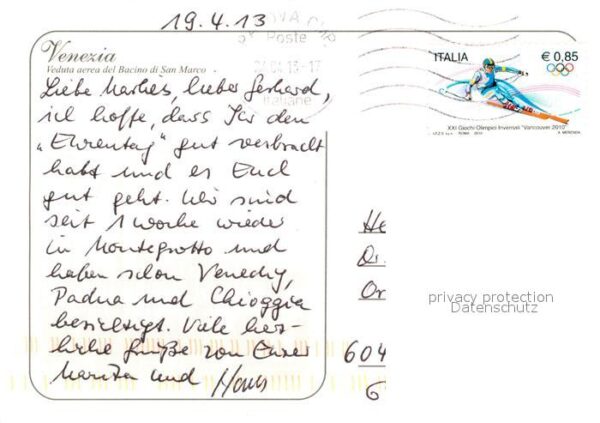 19.4.13
Poste
Italiane
Venezia
Veduta aerea del Bacino di San Marco
ITALIA € 0,85
XXI Giochi Olimpici Invernali "Vancouver 2010"
Liebe Marlies, lieber Gerhard,
ich hoffe, dass Ihr den
„Ehrentag" gut verbracht
habt und es Euch
gut geht. Wir sind
seit 1 Woche wieder
in Montegrotto und
haben schon Venedig,
Padua und Chioggia
besichtigt. Viele herz-
liche Grüße von Eurer
Marita und Hans
He
Dr.
Or
604
6
privacy protection
Datenschutz